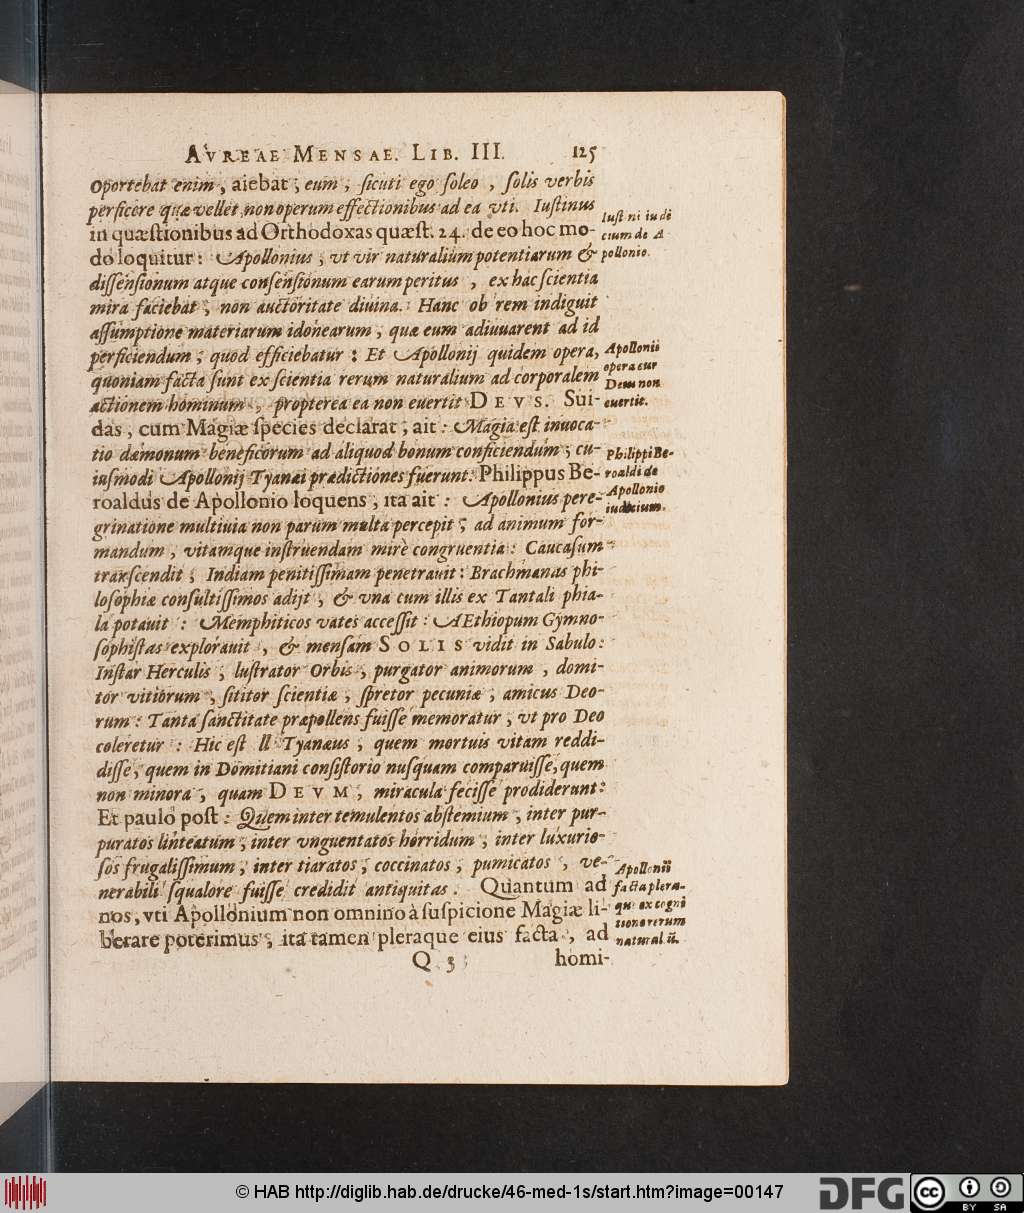 AVREAE MENSAE. LIB. III. 125
oportebat enim, aiebat, eum, sicuti ego soleo, solis verbis
perficere quæ vellet, non operum effectionibus ad ea vti. Iustinus
in quæstionibus ad Orthodoxas quæst. 24. de eo hoc mo-
do loquitur: Apollonius, vt vir naturalium potentiarum &
dissensionum atque consensionum earum peritus, ex hac scientia
mira faciebat, non auctoritate diuina. Hanc ob rem indiguit
assumptione materiarum idonearum, quæ eum adiuuarent ad id
perficiendum, quod efficiebatur: Et Apollonij quidem opera,
quoniam facta sunt ex scientia rerum naturalium ad corporalem
actionem hominum, propterea ea non euertit DEVS. Sui-
das, cum Magiæ species declarat, ait: Magia est inuoca-
tio dæmonum beneficorum ad aliquod bonum conficiendum, cu-
iusmodi Apollonij Tyanæi prædictiones fuerunt. Philippus Be-
roaldus de Apollonio loquens, ita ait: Apollonius pere-
grinatione multiuia non parum multa percepit, ad animum for-
mandum, vitamque instruendam mirè congruentia: Caucasum
transcendit, Indiam penitissimam penetrauit: Brachmanas phi-
losophiæ consultissimos adijt, & vna cum illis ex Tantali phia-
la potauit: Memphiticos vates accessit: AEthiopum Gymno-
sophistas explorauit, & mensam SOLIS vidit in Sabulo:
Instar Herculis, lustrator Orbis, purgator animorum, domi-
tor vitiorum, sititor scientiæ, spretor pecuniæ, amicus Deo-
rum: Tanta sanctitate præpollens fuisse memoratur, vt pro Deo
coleretur: Hic est ille Tyanæus, quem mortuis vitam reddi-
disse, quem in Domitiani consistorio nusquam comparuisse, quem
non minora, quam DEVM, miracula fecisse prodiderunt:
Et paulò post: Quem inter temulentos abstemium, inter pur-
puratos linteatum, inter vnguentatos horridum, inter luxurio-
sos frugalissimum, inter tiaratos, coccinatos, pumicatos, ve-
nerabili squalore fuisse credidit antiquitas. Quantum ad
nos, vti Apollonium non omnino à suspicione Magiæ li-
berare poterimus, ita tamen pleraque eius facta, ad
Q 3 homi-
Iustini iudi
cium de A
pollonio.
Apollonii
opera cur
Deus non
euertit.
Philippi Be-
roaldi de
Apollonio
iudicium.
Apollonii
facta plera-
que ex cogni
tione rerum
naturaliũ.
© HAB http://diglib.hab.de/drucke/46-med-1s/start.htm?image=00147
DFG
cc
BY SA